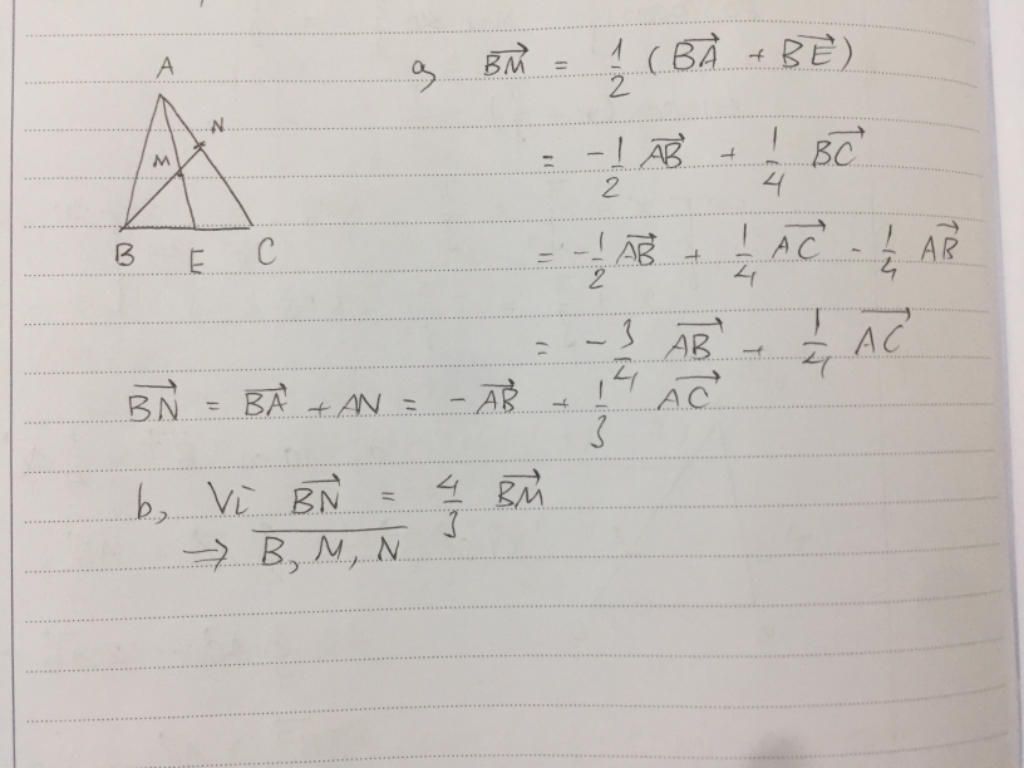 A
N
M
B E C
a, \overrightarrow{BM} = \frac{1}{2} (\overrightarrow{BA} + \overrightarrow{BE})
= -\frac{1}{2} \overrightarrow{AB} + \frac{1}{4} \overrightarrow{BC}
= -\frac{1}{2} \overrightarrow{AB} + \frac{1}{4} \overrightarrow{AC} - \frac{1}{4} \overrightarrow{AB}
= -\frac{3}{4} \overrightarrow{AB} + \frac{1}{4} \overrightarrow{AC}
\overrightarrow{BN} = \overrightarrow{BA} + AN = -\overrightarrow{AB} + \frac{1}{3} \overrightarrow{AC}
b, Vì \overrightarrow{BN} = \frac{4}{3} \overrightarrow{BM}
⇒ \overline{B, M, N}